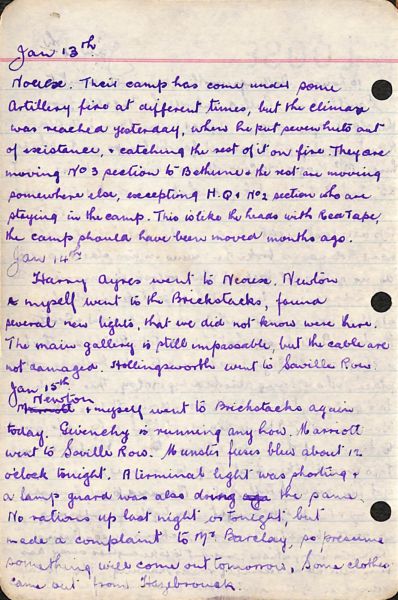 Jan 13th.
Noeuse. Their camp has come under some
Artillery fire at different times, but the climax
was reached yesterday, where he put seven huts out
of existance, + catching the rest of it on fire They are
moving No 3 section to Bethune + the rest are moving
somewhere else, excepting H.Q + No 2 section who are
staying in the camp. This is like the heads with Red Tape,
the camp should have been moved months ago.
Jan 14th
Harry Ayres went to Neouse. Newton
+ myself went to the Brickstacks, found
several new lights, that we did not know were here.
The main gallery is still impassable, but the cable are
not damaged. Hollingsworth went to Saville Row.
Jan 15th
Newton
Marriott + myself went to Brickstacks again
today. Givenchy is running any how. Marriott
went to Saville Row. Munster fuses blew about 12
oclock tonight. A terminal light was shorting +
a lamp guard was also doing the same.
No rations up last night or tonight, but
made a complaint to Mr Barclay, so presume
something will come out tomorrow, Some clothes
came out from Hazebrouck.